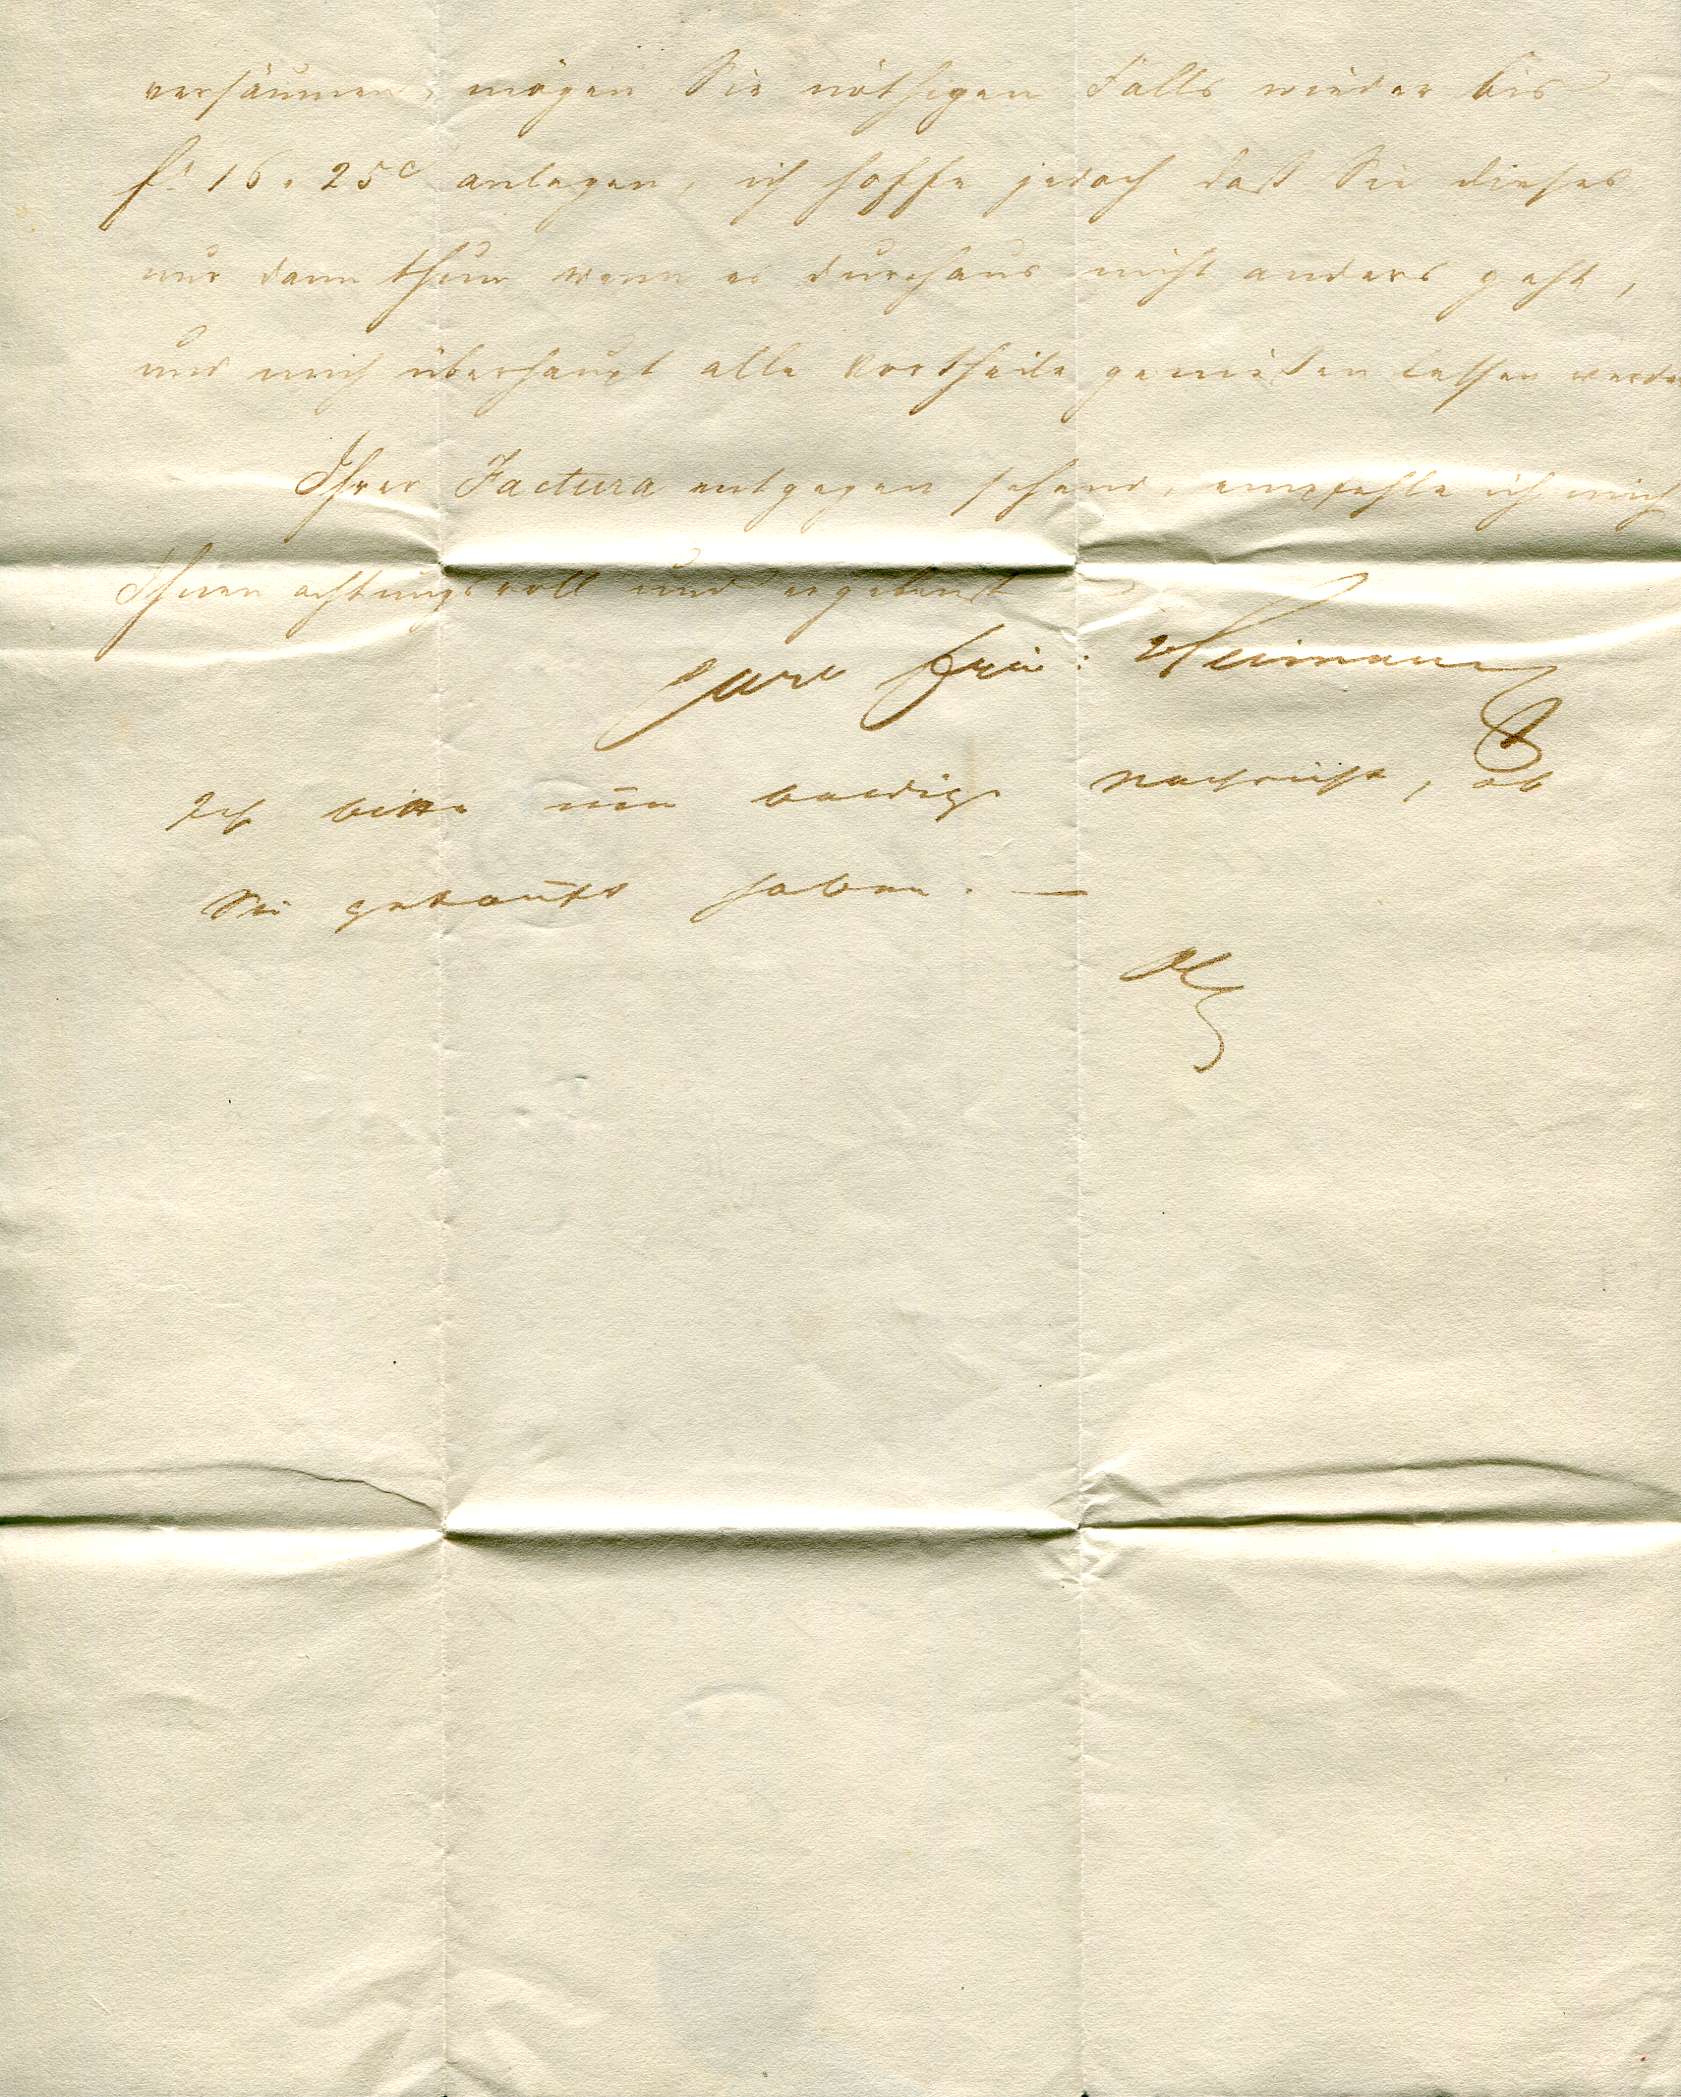 versäumen, mögen Sie nöthigen Falls wieder bis
f. 16. 25 c anlegen, ich hoffe jedoch daß Sie dieses
nur dann thun wenn es durchaus nicht anders geht,
und mich überhaupt alle Vortheile genießen lassen werden
Ihrer Factura entgegen sehend, empfehle ich mich
Ihnen achtungsvoll und ergebenst
Carl Frie:
Ich bitte um baldige Nachricht, ob
Sie gekauft haben. —